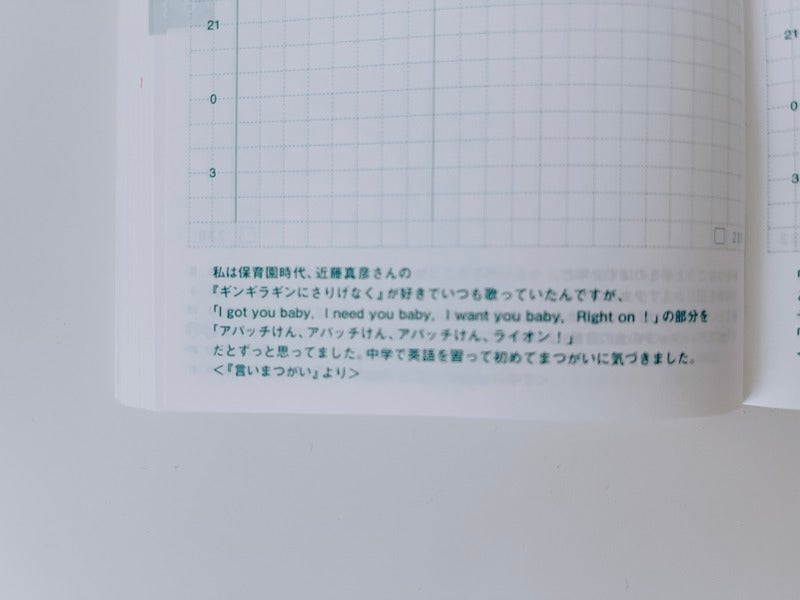 21
0
3
私は保育園時代、近藤真彦さんの
『ギンギラギンにさりげなく』が好きでいつも歌っていたんですが、
「I got you baby, I need you baby, I want you baby, Right on !」の部分を
「アパッチけん、アパッチけん、アパッチけん、ライオン！」
だとずっと思ってました。中学で英語を習って初めてまつがいに気づきました。
＜『言いまつがい』より＞
21
0
3